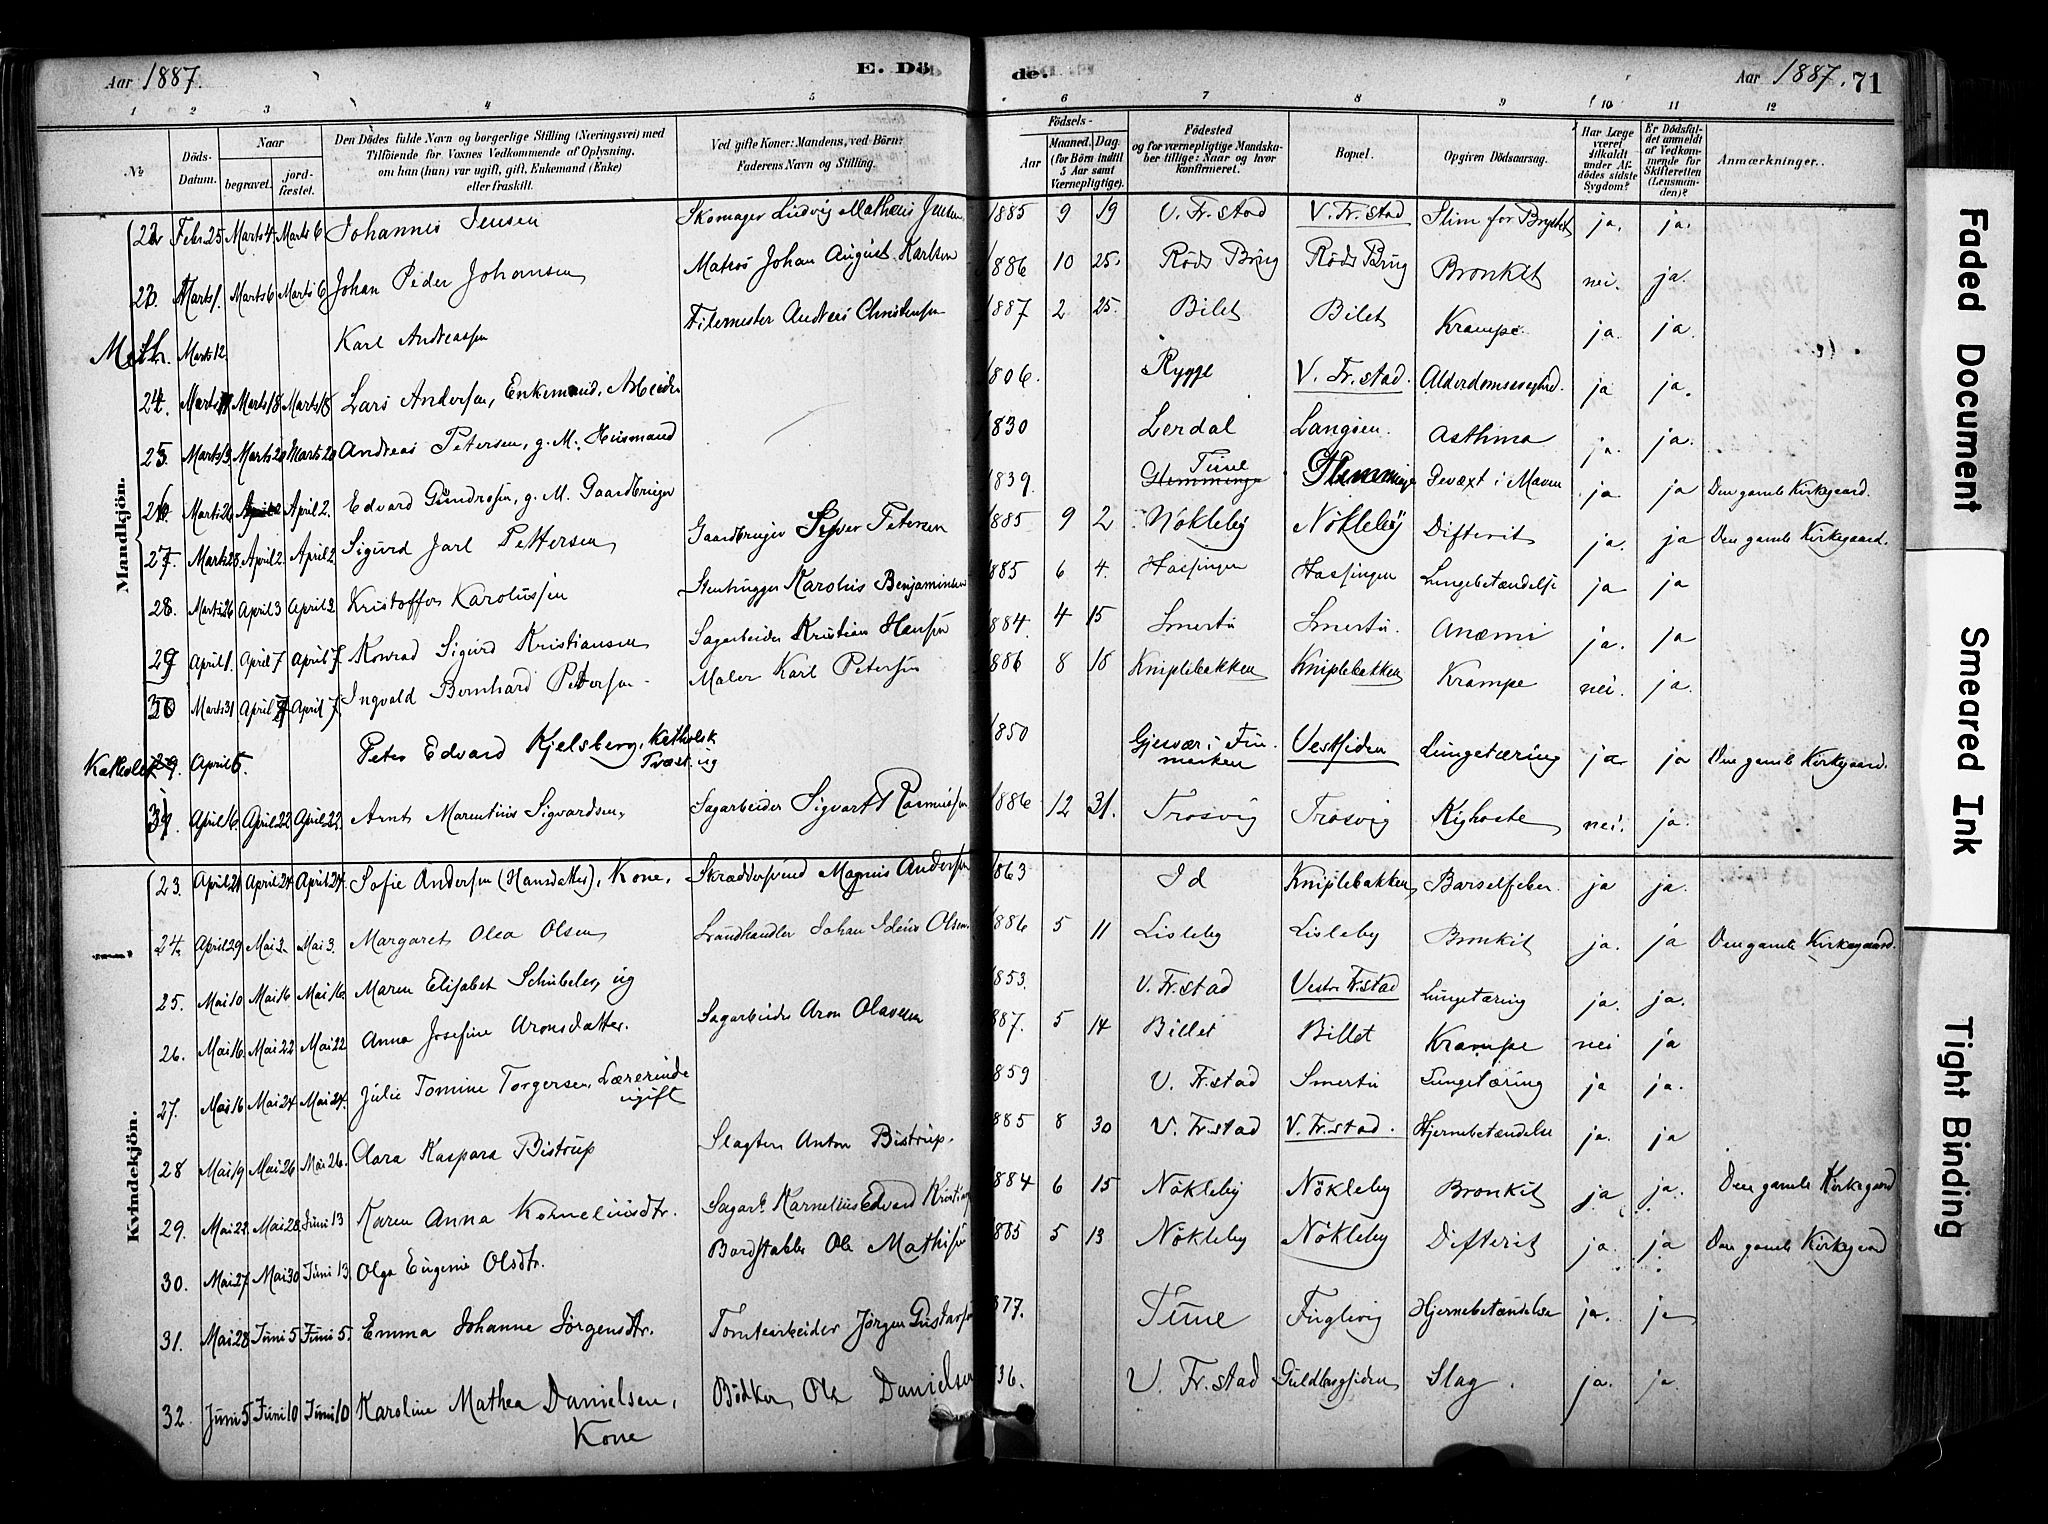 Aar 1887. E. Döde. Aar 1887. 71
1 2 3 4 5 6 7 8 9 10 11 12
№
Döds-Datum.
Naar begravet. jordfæstet.
Den Dödes fulde Navn og borgerlige Stilling (Næringsvei) med
Tilföiende for Voxnes Vedkommende af Oplysning,
om han (hun) var ugift, gift, Enkemand (Enke)
eller fraskilt.
Ved gifte Koner: Mandens, ved Börn:
Faderens Navn og Stilling.
Födsels-
Aar Maaned. Dag.
(for Börn indtil 5 Aar samt Værnepligtige).
Födested
og for værnepligtige Mandskaber tillige: Naar og hvor konfirmeret.
Bopæl.
Opgiven Dödsaarsag.
Har Læge været tilkaldt under Afdödes sidste Sygdom?
Er Dödsfaldet anmeldt af Vedkommende for Skifteretten (Lensmanden)?
Anmærkninger.
Mandkjön.
22 Febr. 25 Marts 4 Marts 6 Johannes Jensen Skomager Ludvig Matheus Jensen 1885 9 19 V. Fr.stad V. Fr.stad Slim for Brystet ja. ja.
23. Marts 1. Marts 6 Marts 6 Johan Peder Johansen Matros Johan August Karlsen 1886 10 25. Röds Brug Röds Brug Bronkit nei. ja.
Meth. Marts 12. Karl Andreassen Filemester Andreas Christensen 1887 2 25. Bilet Bilet Krampe ja. ja.
24. Marts Marts 18 Marts 18 Lars Andersen, Enkemand, Arbeider 1806. Rygge V. Fr.stad. Alderdomssvaghed. ja ja.
25. Marts 13. Marts 20 Marts 20 Andreas Petersen, g. M. Husmand 1830 Lerdal Langöen. Asthma ja. ja.
26 Marts 26 April 2 April 2. Edvard Gundrosen, g. M. Gaardbruger 1839. Glemminge Tune Glemminge Devæxt i Maven ja ja Den gamle Kirkegaard.
27. Marts 25 April 2. April 2 Sigurd Jarl Pettersen Gaardbruger Syver Petersen 1885 9 2 Nökleby Nökleby Difterit ja. ja Den gamle Kirkegaard.
28. Marts 26 April 3 April 3. Kristoffer Karolussen Stenhugger Karolus Benjaminsen 1885 6 4. Hassingen Hassingen Lungebetændelse ja ja
29 April 1. April 7 April 7. Konrad Sigurd Kristiansen Sagarbeider Kristian Hansen 1884. 4 15 Smertu Smertu. Anæmi ja. ja
30 Marts 31 April 7 April 7. Ingvald Bernhard Petersen Maler Karl Petersen 1886 8 18 Kniplebakken Kniplebakken Krampe nei. ja.
Katholsk 29. April 5. Peter Edvard Kjelsberg, Katholsk Præst, ug 1850 Gjesvær i Finmarken Vestsiden Lungetæring ja ja Den gamle Kirkegaard.
31. April 16. April 22 April 22. Arnt Marentius Sigvardsen, Sagarbeider Sigvart Rasmussen 1886 12 31. Trosvig Trosvig Kighoste nei. ja.
Kvindekjön.
23. April 21 April 24 April 24. Sofie Andersen (Hansdatter), Kone. Skræddersvend Magnus Andersen 1863 Id Kniplebakken, Barselfeber. ja ja.
24. April 29 Mai 2. Mai 3. Margaret Olea Olsen Landhandler Johan Olsen 1886 5 11 Lisleby Lisleby Bronkit ja. ja Den gamle Kirkegaard.
25. Mai 10 Mai 16 Mai 16. Maren Elisabet Schübeler, ug 1853. V. Fr.stad Vestre Fr.stad Lungetæring ja. ja.
26. Mai 16. Mai 22 Mai 22 Anna Josefine Aronsdatter. Sagarbeider Aron Olavesen 887. 5 14 Billet Billet Krampe nei ja
27. Mai 16 Mai 24 Mai 24. Julie Tomine Torgersen, Lærerinde ugift 859 V. Fr.stad Smertu Lungetæring ja ja.
28 Mai 19 Mai 26 Mai 26. Clara Kaspara Bistrup Slagter Anton Bistrup. 885 8 30 V. Fr.stad V. Fr.stad. Hjernebetændelse ja. ja
29. Mai 22. Mai 28. Juni 13 Karen Anna Korneliusdtr. Sagarb. Karnelius Edvard 884 6 15 Nökleby Nökleby Bronkit ja ja. Den gamle Kirkegaard
30. Mai 27 Mai 30 Juni 13. Olga Eugenie Olsdtr. Bordstabler Ole Mathisen 885 5 13 Nökleby Nökleby Difterit ja. ja Den gamle Kirkegaard
31. Mai 28 Juni 5 Juni 5 Emma Johanne Jörgensdtr. Tomtearbeider Jörgen Gustavsen 877. Tune Fuglevig Hjernebetændelse ja. ja
32. Juni 5 Juni 10 Juni 10 Karoline Mathea Danielsen, Kone Bödker Ole Danielsen 36. V. Fr.stad Guldbergsiden Slag. ja. ja.
Faded Document
Smeared Ink
Tight Binding